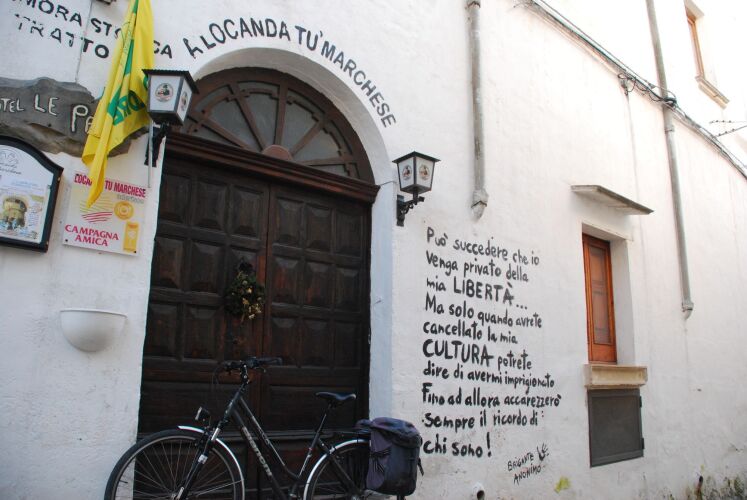 MORA STO
TRATTO
LOCANDA TU' MARCHESE
LE
LOCANDA TU' MARCHESE
CAMPAGNA
AMICA
Può succedere che io
venga privato della
mia LIBERTÀ...
Ma solo quando avrete
cancellato la mia
CULTURA potrete
dire di avermi imprigionato
Fino ad allora accarezzerò
sempre il ricordo di
chi sono!
BRIGANTE
ANONIMO